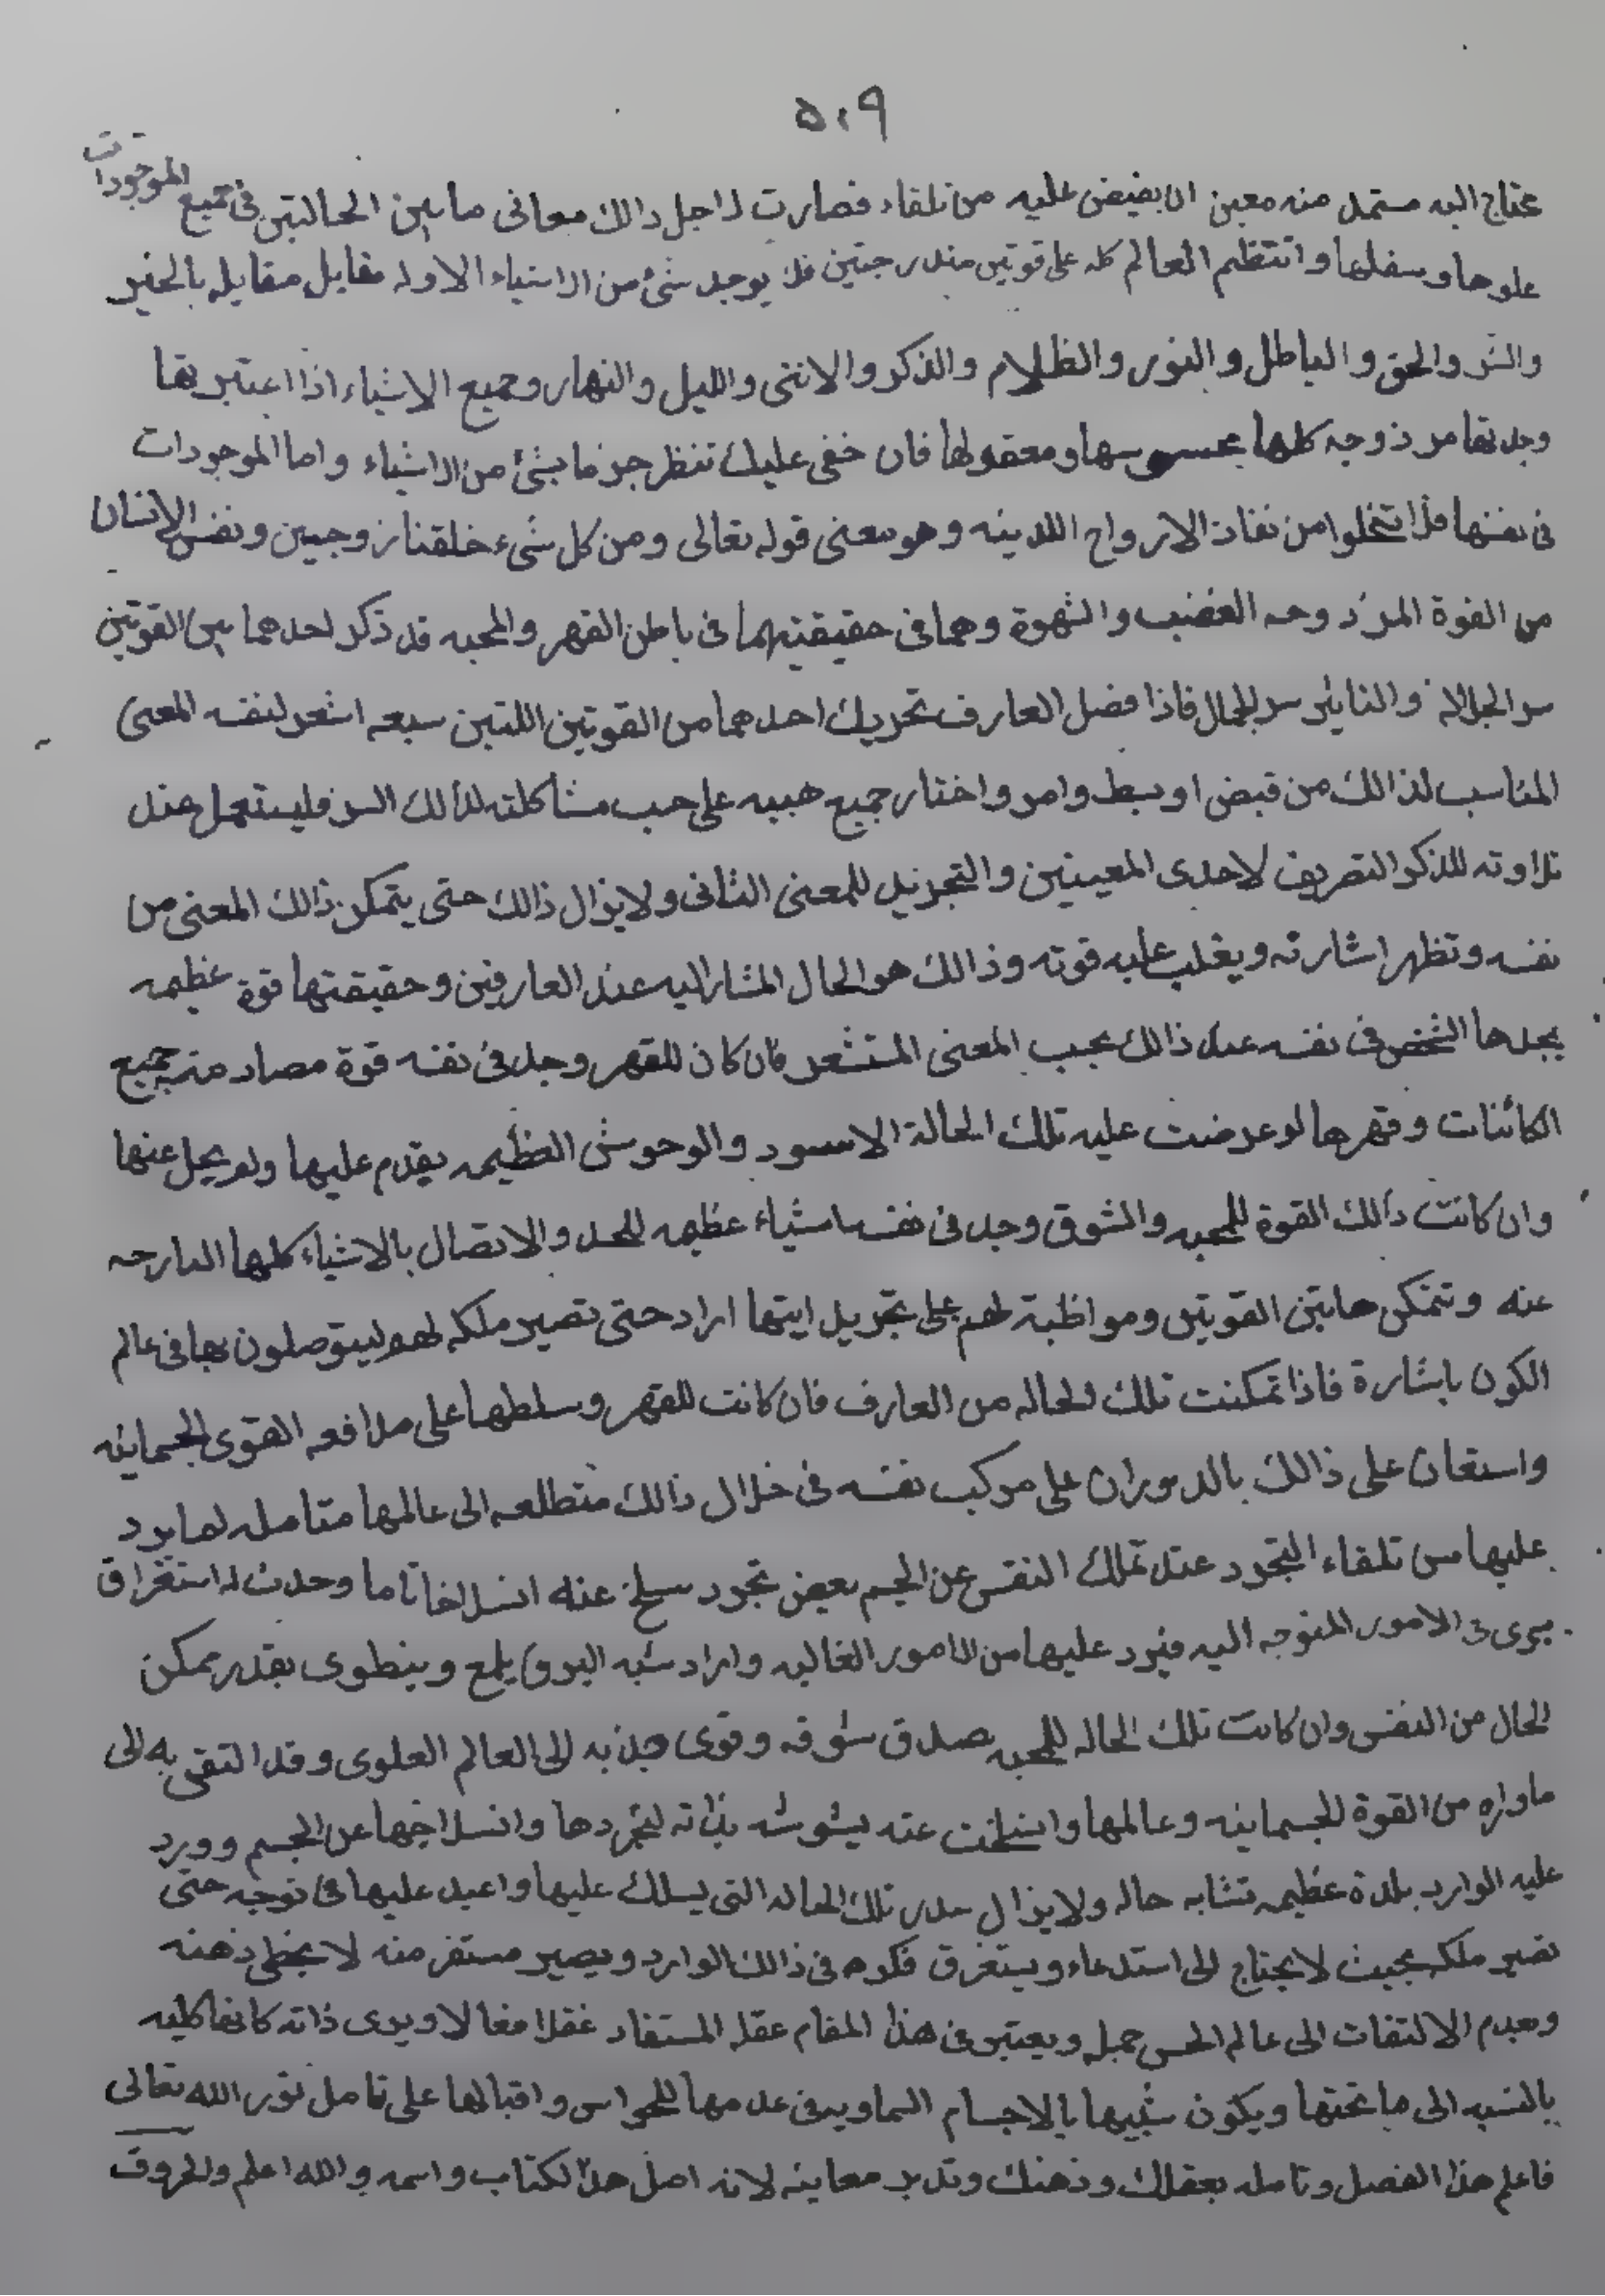 ٥٠٩
محتاج اليه مستمد منه معين ان يفيض عليه من تلقاء فصارت لاجل ذالك معانى ما بين الحالتين فى جميع الموجودات
علوها وسفلها وانتظم العالم كله على قوتين مندرجتين فلا يوجد شئ من الاشياء الا وله مقابل مقابله بالخير
والشر والحق والباطل والنور والظلام والذكر والانثى والليل والنهار وجميع الاشياء اذا اعتبرتها
وجدتها مزذوجه كلها بمحسوسها ومعقولها فان خفى عليك تنظر جزما بشئ من الاشياء واما الموجودات
فى نفسها فلا تخلوا من نفاذ الارواح اللدينه وهو معنى قوله تعالى ومن كل شىء خلقنا زوجين ونفس الانسان
من القوة المزدوجه الغضب والشهوة وهما فى حقيقتهما فى باطن القهر والمحبه قد ذكر احدهما بين القوتين
سر الجلاله والثانى سر الجمال فاذا فضل العارف تحريك احدهما من القوتين اللتين سبعه اشعر لنفسه المعنى
المناسب لذالك من قبض او بسط وامر واختار جميع هيبه على حب مشاكلته لذالك السر فليستعمل عند
تلاوته للذكر التصريف لاحدى المعينين والتجريد للمعنى الثانى ولا يزال ذالك حتى يتمكن ذالك المعنى من
نفسه وتظهر اشارته ويغلب عليه قوته وذالك هو الحال المشار اليه عند العارفين وحقيقتها قوة عظيمه
يجدها الشخص فى نفسه عند ذالك بحبب المعنى المتشعر فان كان للقهر وجد فى نفسه قوة مصادمته جميع
الكائنات وقهرها لو عرضت عليه تلك الحالة الاسود والوحوش العظيمه يقدم عليها ولم يحل عنها
وان كانت ذالك القوة للمحبه والشوق وجد فى نفسه اشياء عظيمه للمحد والاتصال بالاشياء كلها الدارجه
عنه وتتمكن هاتين القوتين ومواظبة لهم على تجريد ايتها اراد حتى تصير ملكه لهم ليتوصلون بها فى عالم
الكون باشارة فاذا تمكنت تلك الحاله من العارف فان كانت للقهر وسلطها على مدافعه القوى الجسمانيه
واستعان على ذالك بالدوران على مركب نفسه فى خلال ذالك متطلعه الى عالمها متامله لما يرد
عليها من تلقاء التجرد عند تملك النفس عن الجسم بعض تجرد سلخ عنه انسلاخا تاما وحدث له استغراق
يرى فى الامور المتوجه اليه فيرد عليها من الامور الغاليه وايراد شبه البرق يلمع وينطوى بقدر تمكن
الحال من النفس وان كانت تلك الحاله للمحبه بصدق شوقه وقوى جذبه الى العالم العلوى وقد التقى به الى
ماوراه من القوة الجسمانيه وعالمها وانسلخت عنه بشوشه بذاته لتجردها وانسلاخها عن الجسم وورد
عليه الوارد بلدة عظيمه تشابه حاله ولا يزال تلك الحاله التى يسلك عليها واعيد عليها فى توجه حتى
تصير ملكه بحيث لا يحتاج الى استدعاء ويستغرق فكره فى ذالك الوارد ويصير مستفز منه لا يخطى ذهنه
وبعدم الالتفات الى عالم الحس جمله ويعتبر فى هذا المقام عقله المستفاد عقلا فعالا ويرى ذاته كانها كليه
بالنسبه الى ما تحتها ويكون شبيها بالاجسام السماويه فى عدمها للحواس واقبالها على تامل نور الله تعالى
فاعلم هذا الفصل وتامله بعقلك وذهنك وتدبر معاينه لانه اصل هذا الكتاب واسمه والله اعلم والحروف